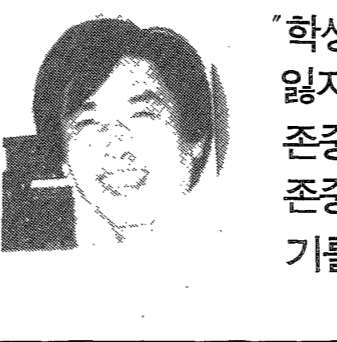 "학생
잃지
존중
존중
기를